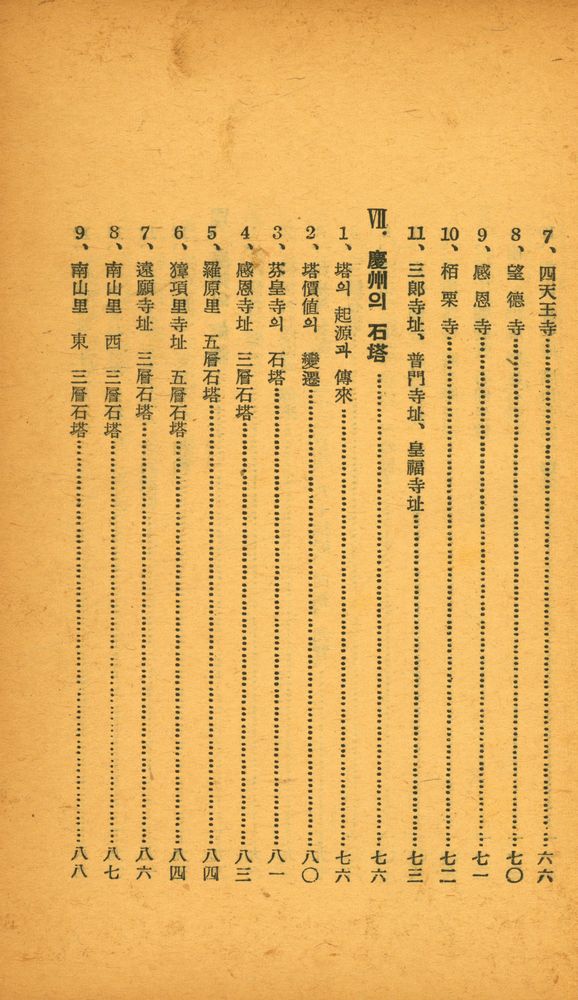 7、四天王寺……………………六六
8、望德寺……………………七〇
9、感恩寺……………………七一
10、栢栗寺……………………七二
11、三郎寺址、普門寺址、皇福寺址……………………七三
Ⅶ. 慶州의 石塔……………………七六
1、塔의 起源과 傳來……………………七六
2、塔價値의 變遷……………………八〇
3、芬皇寺의 石塔……………………八一
4、感恩寺址 三層石塔……………………八三
5、羅原里 五層石塔……………………八四
6、獐項里寺址 五層石塔……………………八四
7、遠願寺址 三層石塔……………………八六
8、南山里 西 三層石塔……………………八七
9、南山里 東 三層石塔……………………八八